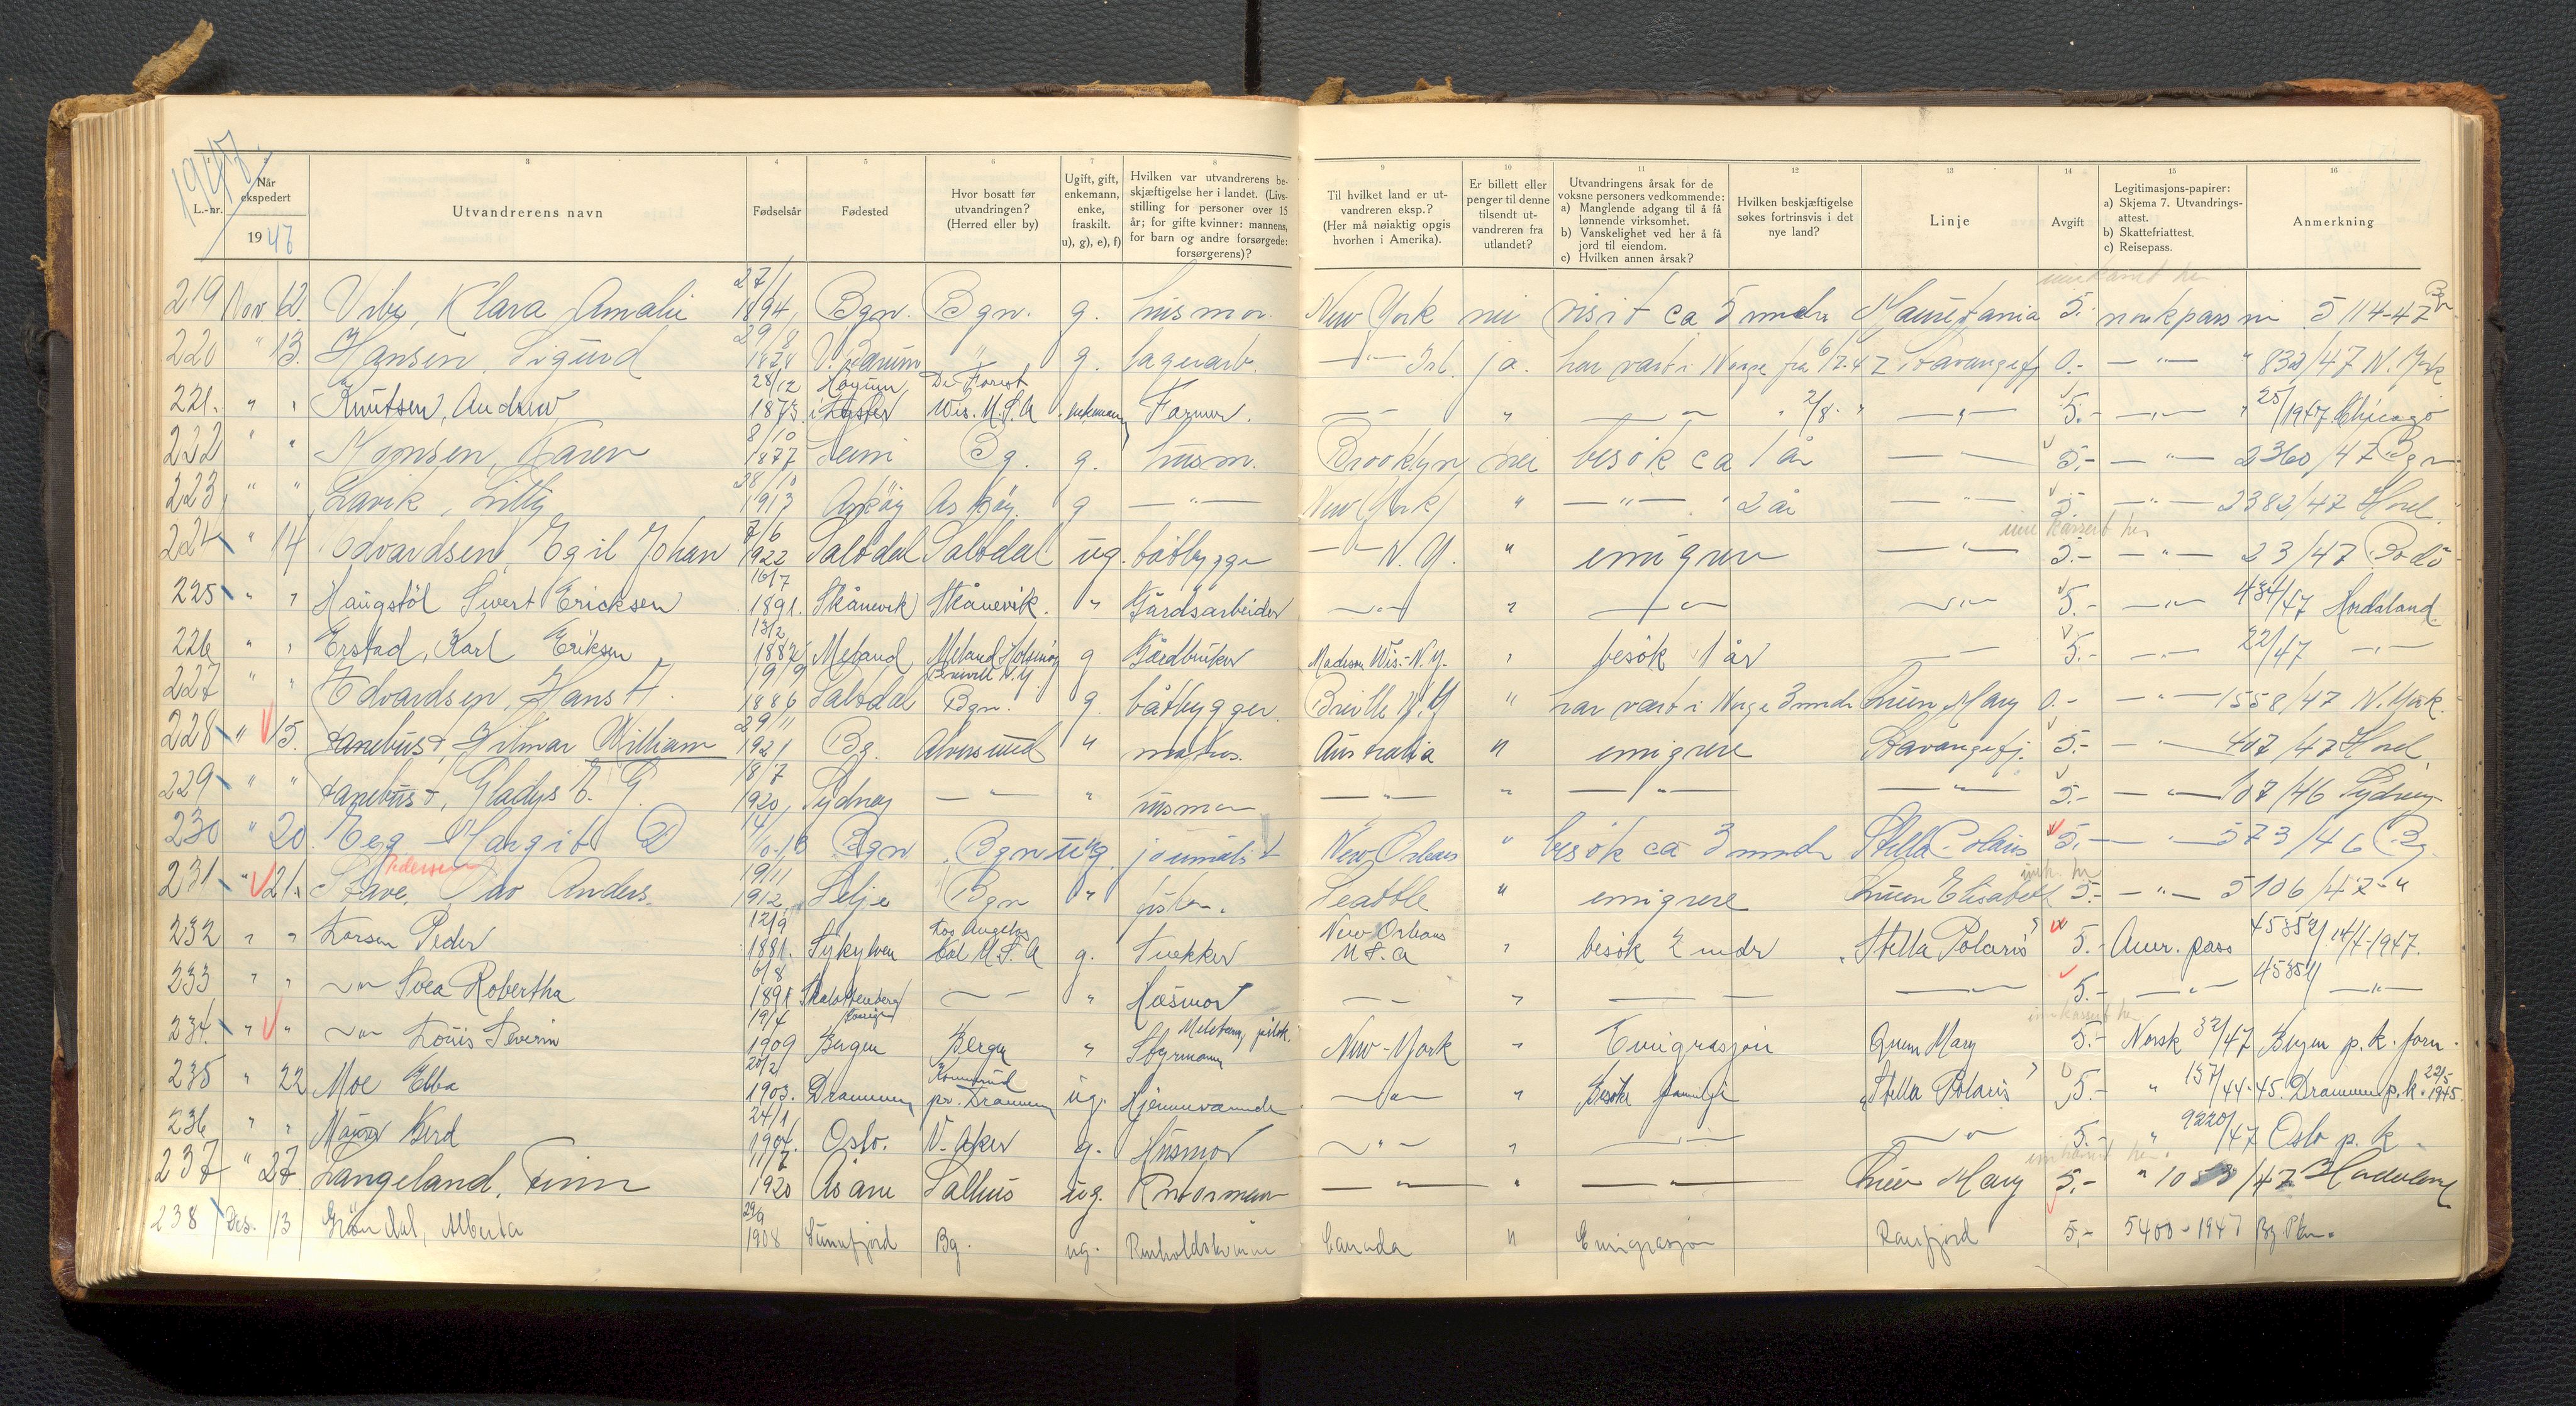 1947.
L.-nr. 2 Når ekspedert 1947 3 Utvandrerens navn 4 Fødselsår 5 Fødested 6 Hvor bosatt før utvandringen? (Herred eller by) 7 Ugift, gift, enkemann, enke, fraskilt. u), g), e), f) 8 Hvilken var utvandrerens beskjæftigelse her i landet. (Livsstilling for personer over 15 år; for gifte kvinner: mannens, for barn og andre forsørgede: forsørgerens)? 9 Til hvilket land er utvandreren eksp.? (Her må nøiaktig opgis hvorhen i Amerika). 10 Er billett eller penger til denne tilsendt utvandreren fra utlandet? 11 Utvandringens årsak for de voksne personers vedkommende: a) Manglende adgang til å få lønnende virksomhet. b) Vanskelighet ved her å få jord til eiendom. c) Hvilken annen årsak? 12 Hvilken beskjæftigelse søkes fortrinsvis i det nye land? 13 Linje 14 Avgift 15 Legitimasjons-papirer: a) Skjema 7. Utvandringsattest. b) Skattefriattest. c) Reisepass. 16 Anmerkning
219 Nov. 12. Vibe, Klara Amalie 27/1 1894, Bgn. Bgn. g. husmor. New York nei visit ca 5 mndr Mauretania 5.- norsk pass nr 5114-47 Bgn
220 " 13. Hansen, Sigurd 29/8 1878 V. Bærum " g. lagerarb. —"— ja. har vært i Norge fra 6/12.47 Stavangerfj 0.- —"— " 832/47 N. York
221. " " Knutsen, Andrew 28/12 1873 Høyum i Luster De Forest Wis. U.S.A. enkemann Farmer. —"— " —"— " 2/8. " —"— 5.- —"— " 25/1947 Chicago
222 " " Monsen, Karen 8/10 1877 Leim Bg. g. husm. Brooklyn nei besøk ca 1 år —"— 5.- —"— 2360/47 Bgn
223, " " Lavik, Lilly 28/10 1913 Askøy Askøy. g —"— New York " —"— 2 år —"— 5.- —"— 2382/47 Hord.
224 " 14 Edvardsen, Egil Johan 7/6 1922 Saltdal Saltdal ug. båtbygger —"— N.Y. " emigrere —"— 5.- —"— 23/47 Bodø
225 " " Haugstöl Sivert Ericksen 16/7 1891. Skånevik Skånevik. " Gårdsarbeider —"— " —"— —"— 5.- —"— 434/47 Hordaland
226 " " Erstad, Karl Eriksen 13/2 1887 Meland Meland Holsnöy g Gårdbruker Madison Wis.- N.Y. " besøk 1 år —"— 5.- —"— 22/47 —"—
227 " " Edvardsen, Hans A. 19/9 1886 Saltdal Bgn. g. båtbygger Breville N.Y " har vært i Norge 3 mndr Queen Mary 0.- —"— 1558/47 N. York.
228 " 15. Hanebust, Hilmar William 29/11 1921 Bg. Alversund " matros. Australia " emigrere Stavangerfj. 5.- —"— 407/47 Hord
229 " " Hanebust, Gladys E. G. 18/7 1920, Sydney —"— " husmor —"— " —"— —"— 5.- —"— 107/46 Sydney
230 " 20. Eeg Margit Bgn Bgn ug. journalist New Orleans " besøk ca 3 mndr Stella Polaris 5.- —"— 573/46 Bg.
231 " 21. Stave, Pedersen Olav Anders. 19/11 1912, Selje Bgn " fisker. Seattle " emigrere Queen Elisabeth 5.- —"— 5106/47 - "
232 " " Larsen Peder 12/9 1881. Sykylven Los Angelos Cal U.S.A g. Snekker New Orleans U.S.A " besök 2 mdr "Stella Polaris" 5.- Amr. pass 45352/ 14/7-1947.
233 " " —"— Svea Robertha 6/8 1891 Skalottenberg Sverige —"— " Husmor —"— " —"— —"— 5.- —"— 4535 —"—
234. " " —"— Louis Severin 19/4 1909 Bergen Bergen " Styrmann New-York " Emigrasjon Queen Mary 5.- Norsk 32/47 Bergen p.k. forn.
235 " 22 Moe Ebba 20/2 1903. Drammen Konnerud pr. Drammen ug. Hjemmeværende —"— " Besøke familje "Stella Polaris" 5.- " 157/44-45. Drammen p.k. 22/5 1945.
236 " " Major Gerd 24/1 1904. Oslo. V. Aker g. Husmor —"— " —"— —"— 5.- " 9220/47 Oslo p.k.
237 " 27 Langeland, Finn 11/7 1920 Åsane Salhus ug. Kontormann —"— " —"— Queen Mary 5.- " 1053/47 Hordaland
238 Des. 13 Gröndal, Alberta 29/9 1908 Sunnfjord Bg. ug. Renholdskvinne Canada " Emigrasjon Ranfjord 5,- 5400-1947 Bg. Pkm.